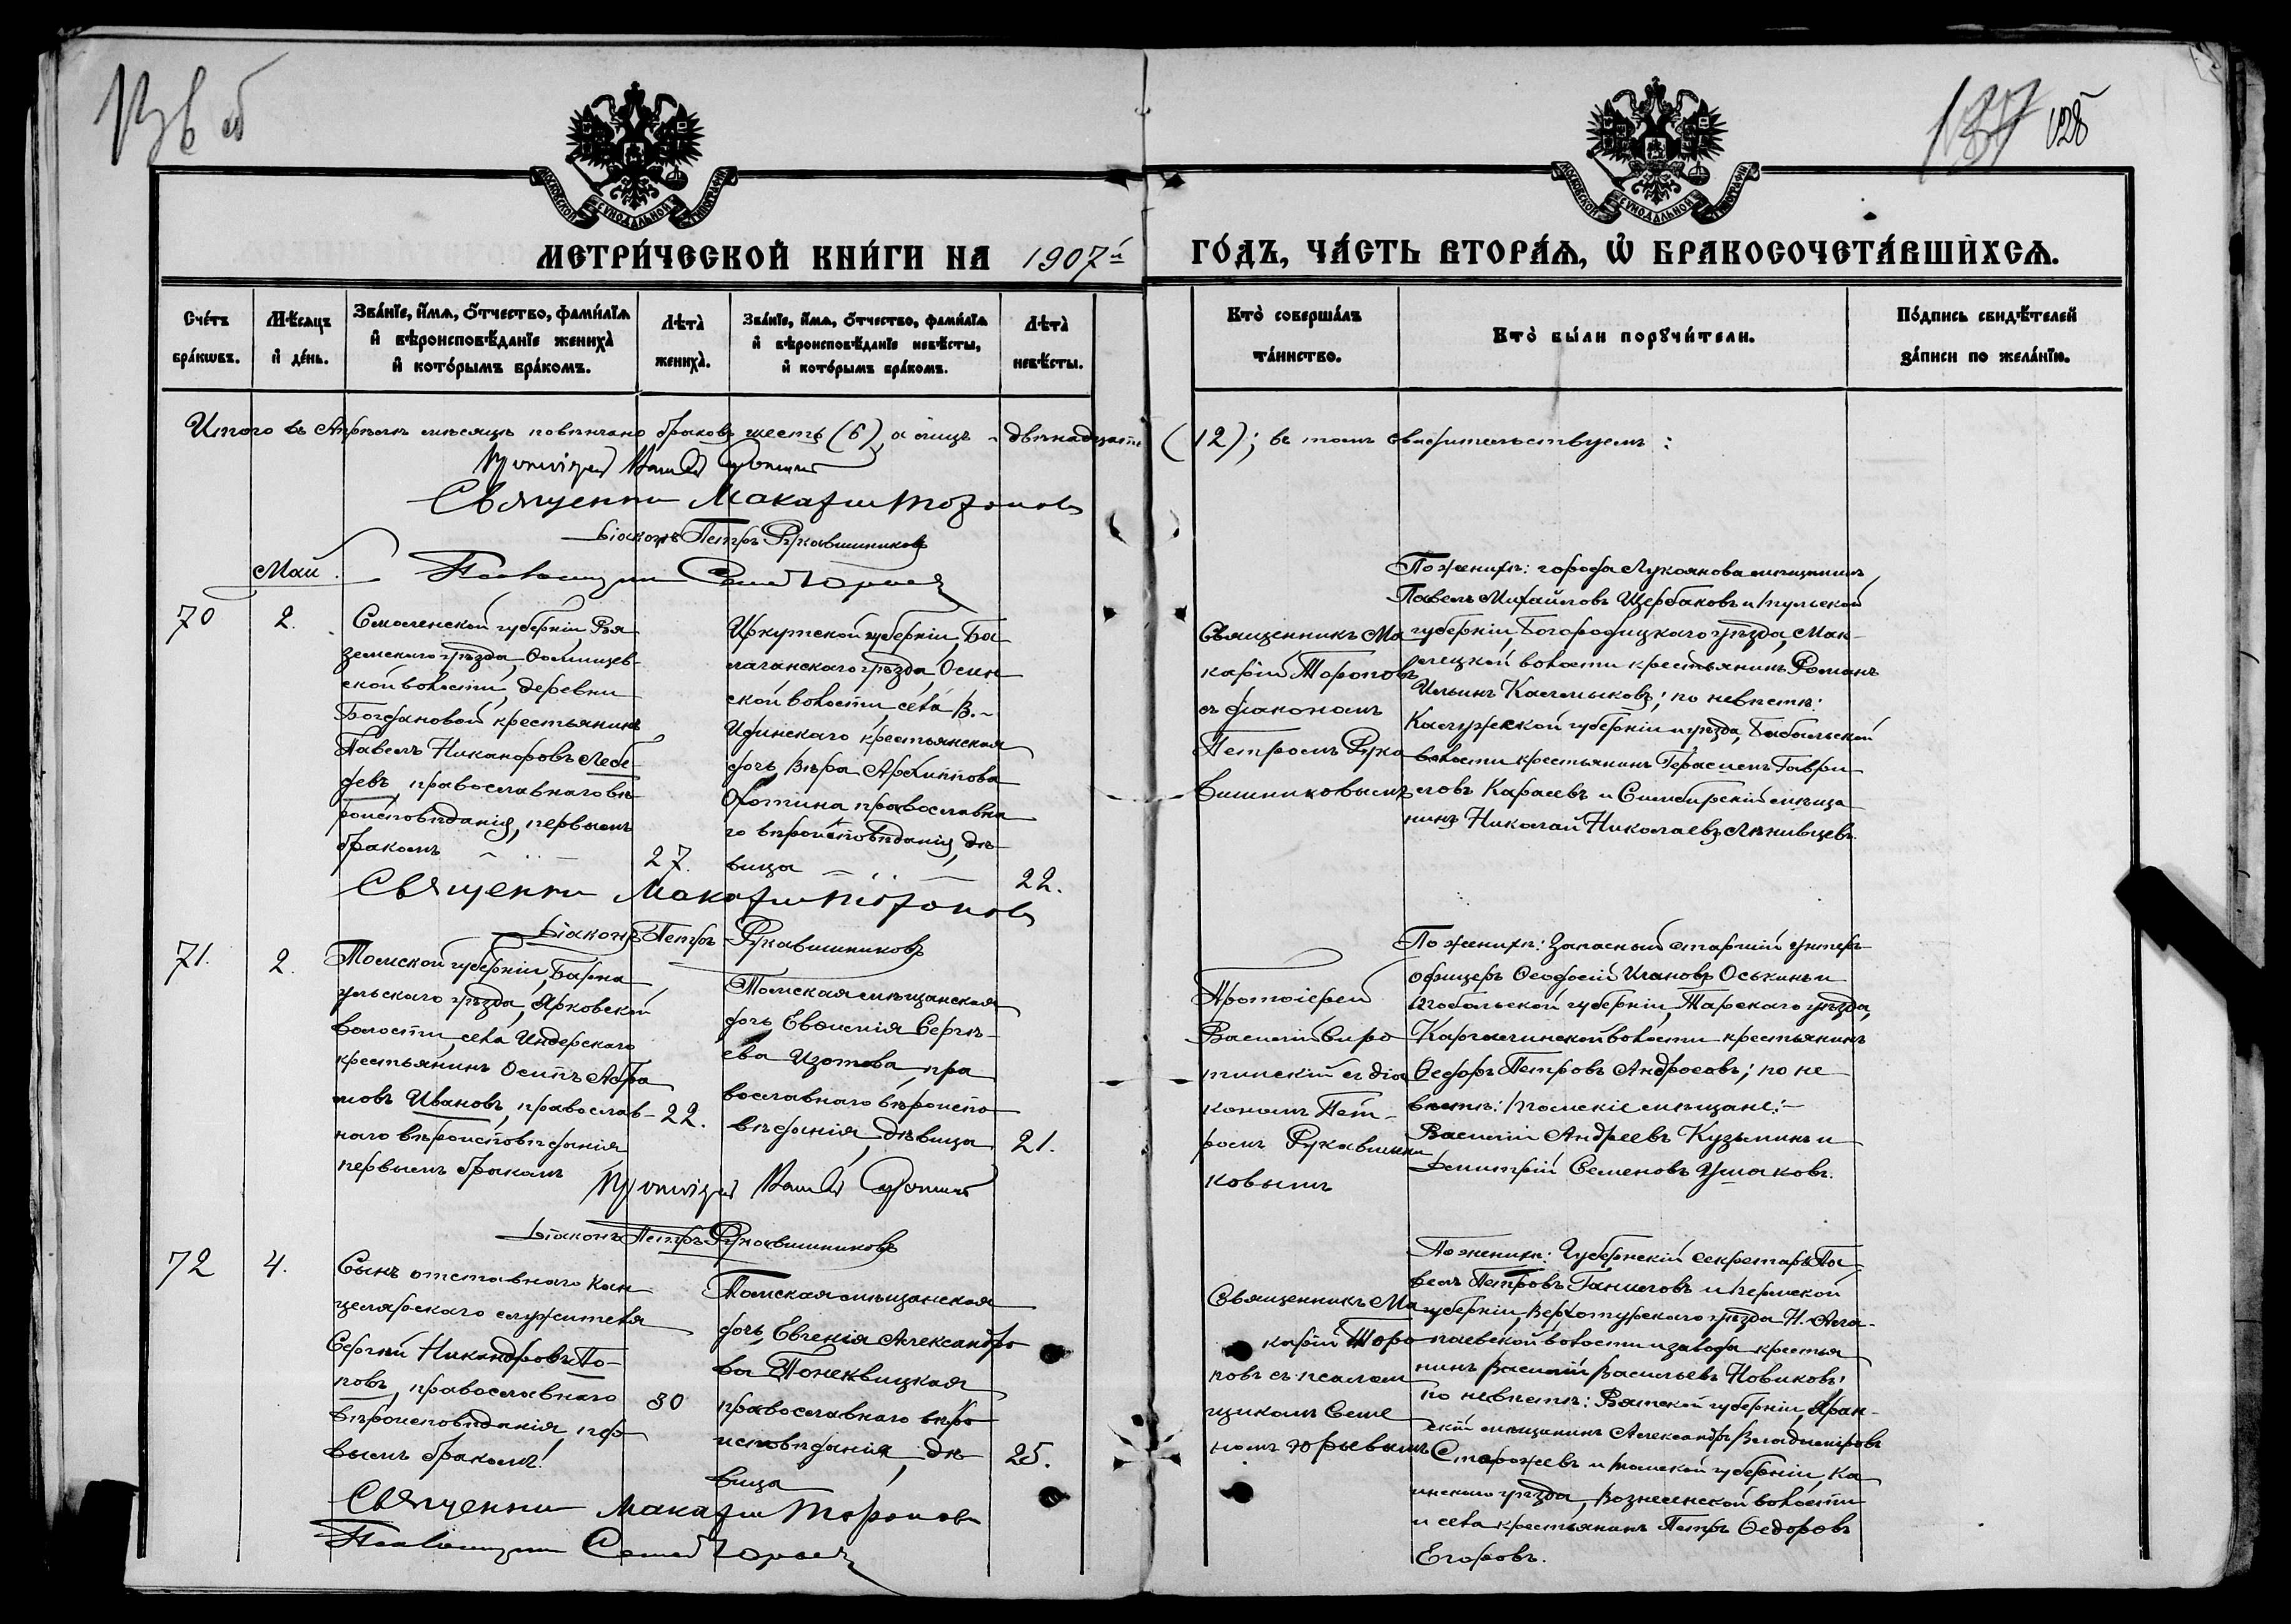 137 128
МОСКОВСКОЙ СѴНОДАЛЬНОЙ ТИПОГРАФІИ
МОСКОВСКОЙ СѴНОДАЛЬНОЙ ТИПОГРАФІИ
МЕТРИ́ЧЕСКОЙ КНИ́ГИ НА 1907й ГО́ДЪ, ЧА́СТЬ ВТОРА́Я, Ѡ БРАКОСОЧЕТА́ВШИХСЯ.
Сче́тъ
бра́кѡвъ.
Мѣ́сяцъ
и де́нь.
Зва́нїе, и́мя, о́тчество, фами́лїя
и вѣроисповѣ́данїе жениха̀
и кото́рымъ бра́комъ.
Лѣта̀
жениха̀.
Зва́нїе, и́мя, о́тчество, фами́лїя
и вѣроисповѣ́данїе невѣ́сты,
и кото́рымъ бра́комъ.
Лѣта̀
невѣ́сты.
Кто̀ соверша́лъ
та́инство.
Кто̀ бы́ли порꙋчи́тели.
По́дпись свидѣ́телей
за́писи по жела́нїю.
Итого въ Апрѣлѣ мѣсяцѣ повѣнчано браковъ шесть (6), а лицъ - двѣнадцать (12); въ томъ свидѣтельствуемъ:
Священник Макарий Торопов
Діаконъ Петръ Рукавишниковъ
Псаломщик Семен Юрьев
Май.
70
2.
Смоленской губерніи Вя
земскаго уѣзда,
ской волости, деревни
Богдановой крестьянинъ
Павелъ Никаноровъ Лебе
девъ, православнаго вѣ
роисповѣданія, первымъ
бракомъ
27.
Иркутской губерніи, Ба
лаганскаго уѣзда, Осин
ской волости, села В.-
Идинскаго крестьянская
дочь, Вѣра Архиппова
Охотина православна
го вѣроисповѣданія, дѣ
вица
22.
Священникъ Ма
карій Тороповъ
съ діакономъ
Петромъ Рука
вишниковымъ
По женихѣ: города Лукоянова мѣщанинъ
Павелъ Михайловъ Щербаковъ и Тульской
губерніи, Богородицкаго уѣзда,
волости крестьянинъ Романъ
Ильинъ Калмыковъ; по невѣстѣ:
Калужской губерніи и уѣзда, Бабынской
волости крестьянинъ Герасимъ Гаври
ловъ Карасевъ и Симбирскій мѣща
нинъ Николай Николаевъ Лѣнивцевъ.
Священник Макарий Торопов
Діаконъ Петръ Рукавишниковъ
71.
2.
Томской губерніи, Барна
ульскаго уѣзда, Ярковской
волости, села Индерскаго
крестьянинъ Осипъ Абра
мовъ Ивановъ, православ-
наго вѣроисповѣданія
первымъ бракомъ
22.
Томская мѣщанская
дочь Евѳимія Сергѣ-
ева Изотова, пра
вославнаго вѣроиспо
вѣданія, дѣвица
21.
Протоіерей
Василій Сиро
тинскій съ діа
кономъ Пет-
ромъ Рукавишни
ковымъ
По женихѣ: Запасный старшій унтеръ-
офицеръ Ѳеодосій Ивановъ Оськинъ и
Тобольской губерніи, Тарскаго уѣзда,
Каргалинской волости крестьянинъ
Ѳедоръ Петровъ Андроловъ; по не
вѣстѣ: томскіе мѣщане:
Василій Андреевъ Кузьминъ и
Димитрій Семеновъ Ушаковъ.
Діаконъ Петръ Рукавишниковъ
72
4.
Сынъ отставного кан
целярскаго служителя
Сергѣй Никандровъ По-
повъ, православнаго
вѣроисповѣданія, пер
вымъ бракомъ.
30
Томская мѣщанская
дочь, Евгенія Александро
ва Понеквицкая
православнаго вѣро
исповѣданія, дѣ
вица
25.
Священникъ Ма
карій Торо
повъ съ псалом
щикомъ Семе
номъ Юрьевымъ
По женихѣ: Губернскій секретарь Па
велъ Петровъ Ганиловъ и Пермской
губерніи, Верхотурскаго уѣзда Н. Ала-
паевской волости и завода крестья
нинъ Василій Васильевъ Новиковъ;
по невѣстѣ: Вятской губерніи, Яран-
скій мѣщанинъ Александръ Владиміровъ
Сторожевъ и Томской губерніи, Ка
инскаго уѣзда, Вознесенской волости
и села крестьянинъ Петръ Ѳедоровъ
Егоровъ.
Священник Макарий Торопов
Псаломщик Семен Юрьев